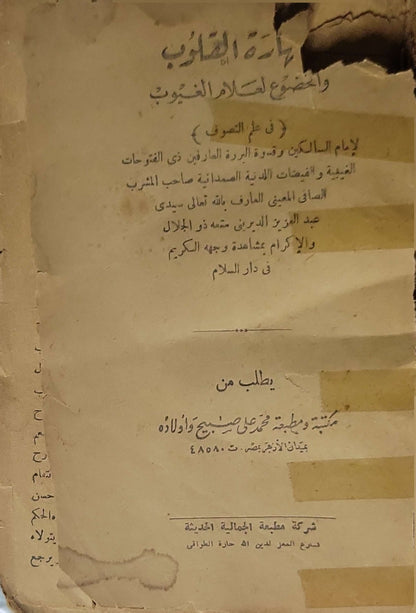 هارة القلوب
والخضوع لعلام الغيوب
﴿ فى علم التصوف ﴾
لإمام السالكين وقدوة البررة العارفين ذى الفتوحات
الغيبية والفيضات اللدنية الصمدانية صاحب المشرب
الصافى المعينى العارف بالله تعالى سيدى
عبد العزيز الديرينى متعه ذو الجلال
والإكرام بمشاهدة وجهه الكريم
فى دار السلام
يطلب من
مكتبة ومطبعة محمد على صبيح وأولاده
بميدان الأزهر بمصر. ت ٤٨٥٨٠
شركة مطبعة الجمالية الحديثة
شارع المعز لدين الله حارة الطواقى
تمام
حسن
والحكم
يتولاه
يرجع